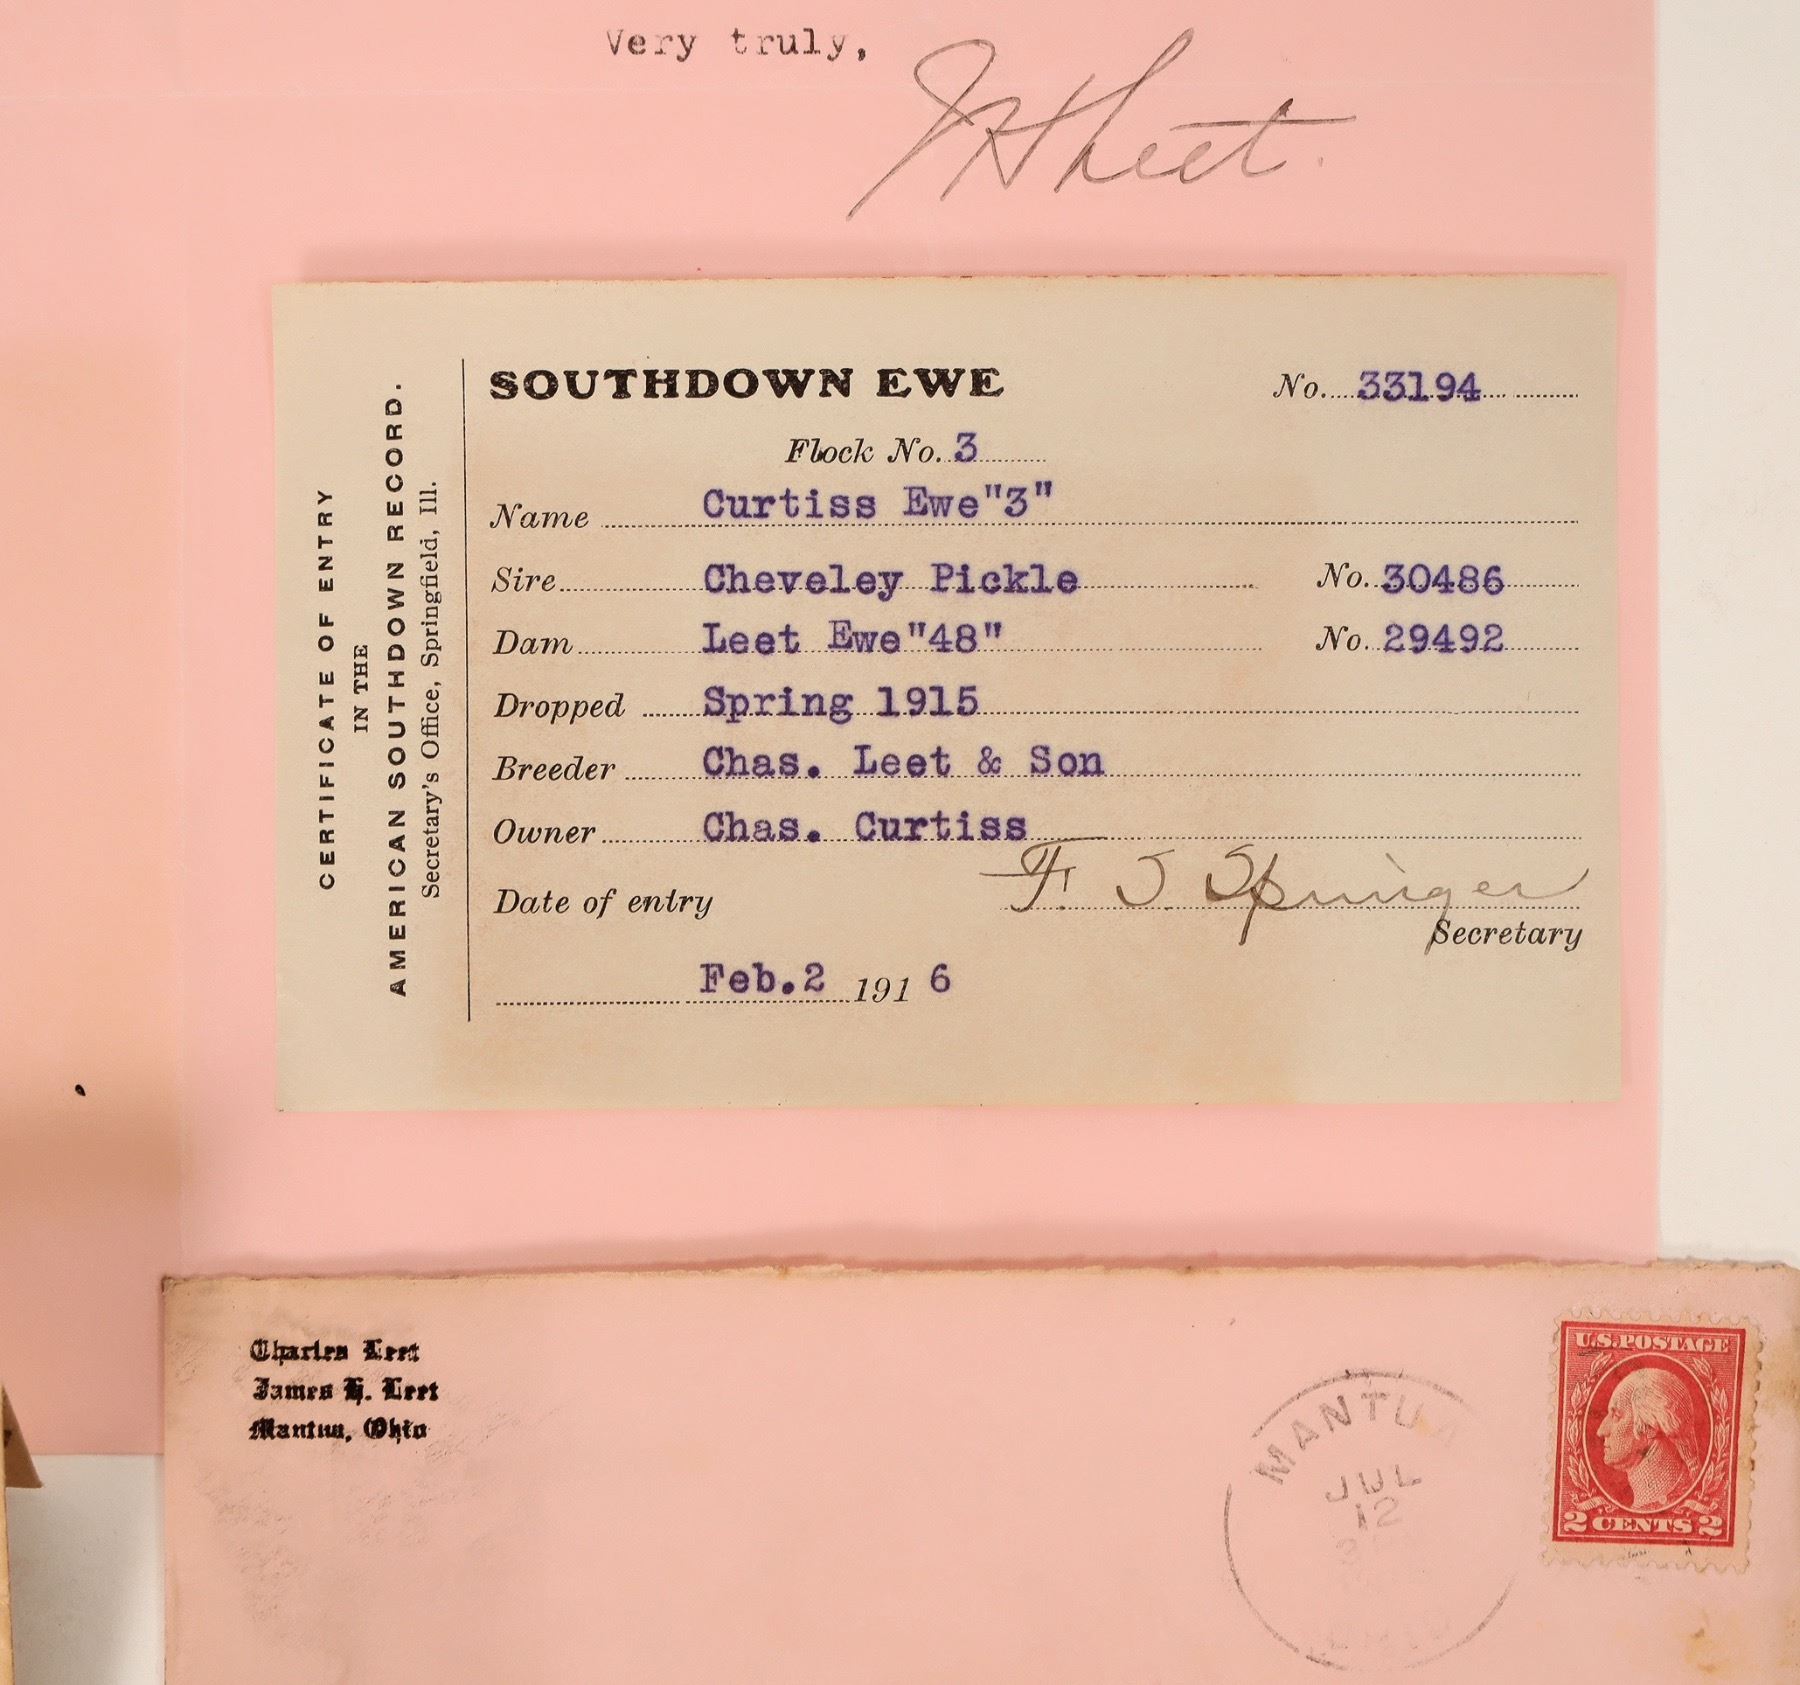 Very truly,
J H Leet.
CERTIFICATE OF ENTRY
IN THE
AMERICAN SOUTHDOWN RECORD.
Secretary's Office, Springfield, Ill.
SOUTHDOWN EWE No. 33194
Flock No. 3
Name Curtiss Ewe"3"
Sire Cheveley Pickle No. 30486
Dam Leet Ewe"48" No. 29492
Dropped Spring 1915
Breeder Chas. Leet & Son
Owner Chas. Curtiss
Date of entry F. S. Springer
Secretary
Feb.2 1916
Charles Leet
James H. Leet
Mantua, Ohio
MANTUA
JUL
12
U.S. POSTAGE
2 CENTS 2